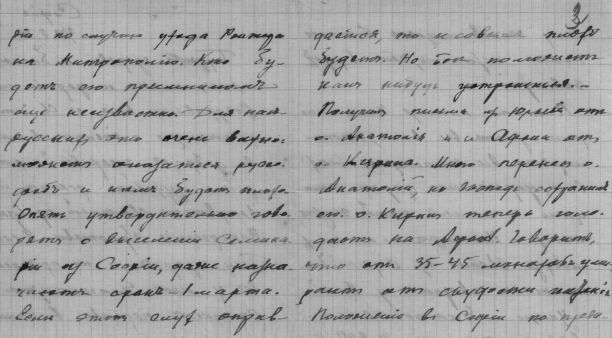 рію по случаю ухода Ректора
на Митрополію. Кто бу-
детъ его преемникомъ
еще неизвѣстно. Для насъ
русскихъ это очень важно:
можетъ оказаться русо-
фобъ и намъ будетъ плохо.
Опять утвердительно гово-
рятъ о выселеніи Семина-
ріи из Софіи, даже назна-
чаютъ срокъ - 1 марта.
Если этотъ слух оправ-
3
дается, то и совсѣм плохо
будетъ. Но Бог поможетъ
какъ нибудь устроиться. -
Получилъ письма из Юрьева отъ
о. Анатолія и с Афона отъ
о. Кирика. Много перенесъ о.
Анатолій, но Господь сохранилъ
его. о. Кирикъ теперь голо-
даетъ на Афонѣ. Говоритъ,
что отъ 35-45 монаховъ уми-
раютъ отъ скудости
Положеніе въ Софіи по